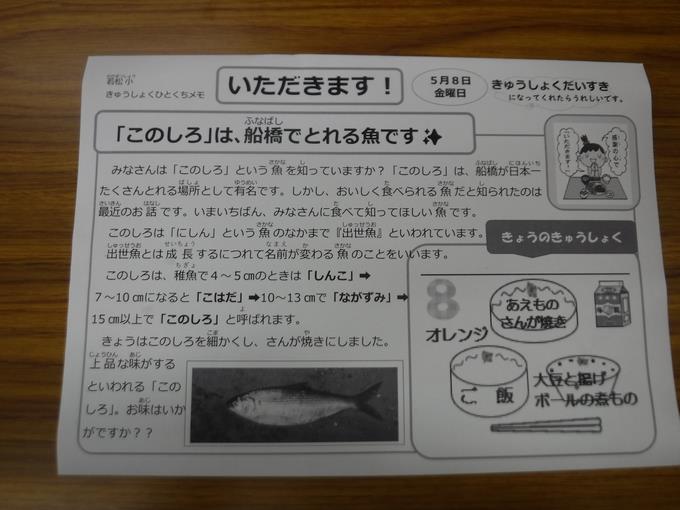 若松小
きゅうしょくひとくちメモ
いただきます!
5月8日
金曜日
きゅうしょくだいすき
になってくれたらうれしいです。
「このしろ」は、船橋でとれる魚です
みなさんは「このしろ」という魚を知っていますか?「このしろ」は、船橋が日本一
たくさんとれる場所として有名です。しかし、おいしく食べられる魚だと知られたのは
最近のお話です。いまいちばん、みなさんに食べて知ってほしい魚です。
このしろは「にしん」という魚のなかまで『出世魚』といわれています。
出世魚とは成長するにつれて名前が変わる魚のことをいいます。
このしろは、稚魚で4~5㎝のときは「しんこ」➡
7~10㎝になると「こはだ」➡10~13㎝で「ながずみ」➡
15㎝以上で「このしろ」と呼ばれます。
きょうはこのしろを細かくし、さんが焼きにしました。
上品な味がする
といわれる「この
しろ」。お味はいか
がですか??
感謝の心で
いただきます!
きょうのきゅうしょく
8
オレンジ
あえもの
さんが焼き
ご飯
大豆と揚げ
ボールの煮もの